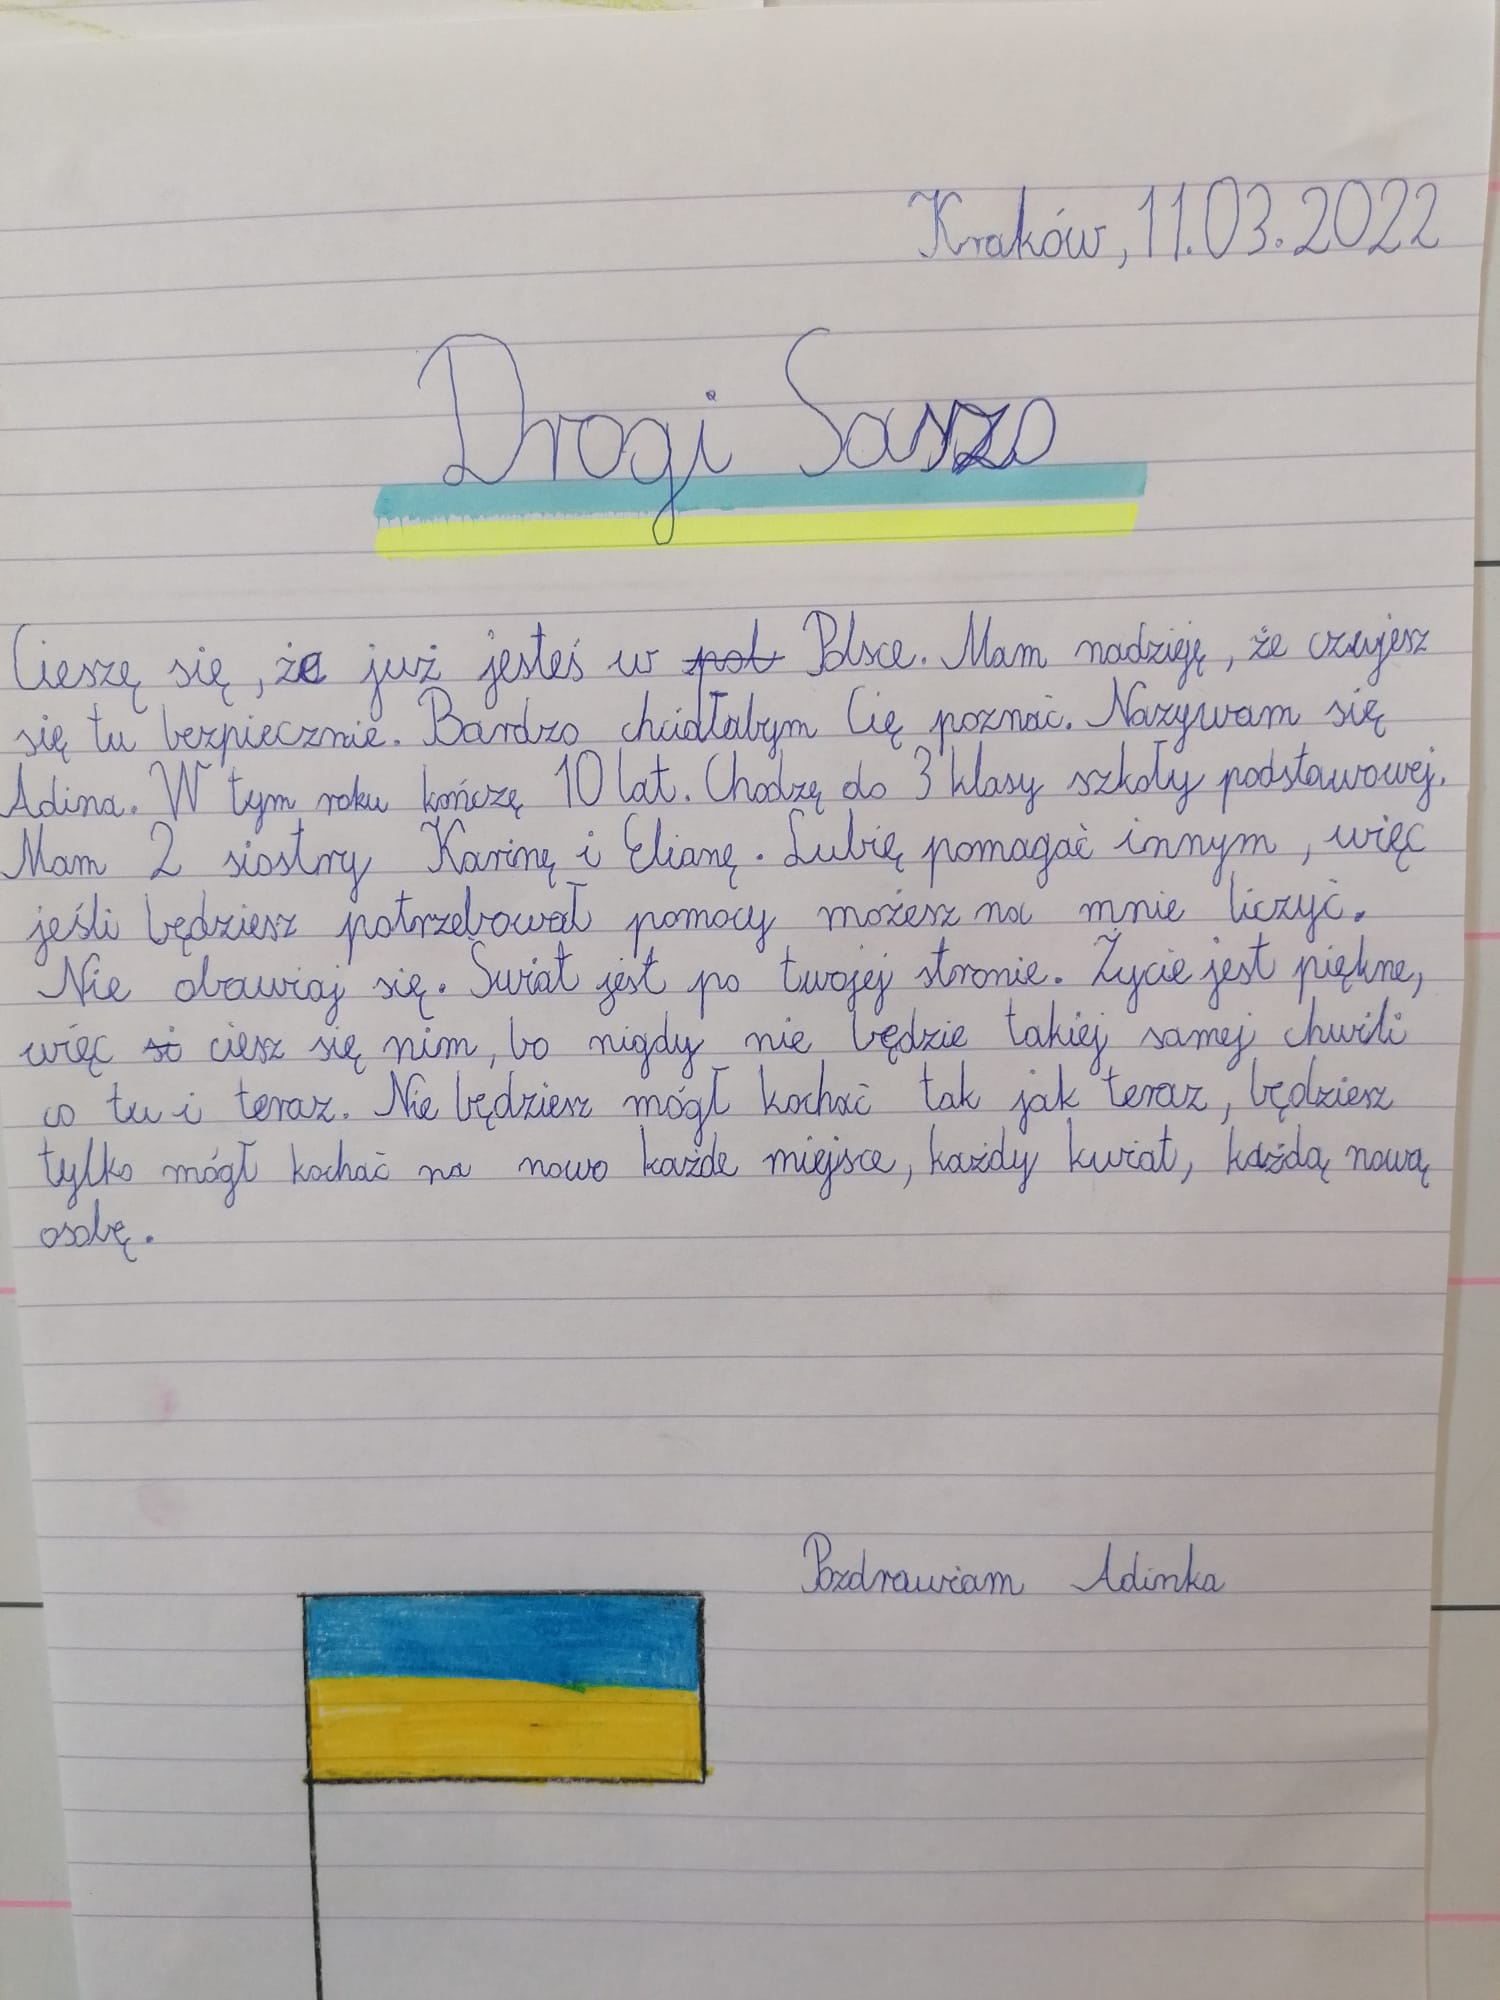 Kraków, 11.03.2022
Drogi Saszo
Cieszę się, że już jesteś w pol Polsce. Mam nadzieję, że czujesz
się tu bezpiecznie. Bardzo chciałabym Cię poznać. Nazywam się
Adina. W tym roku kończę 10 lat. Chodzę do 3 klasy szkoły podstawowej.
Mam 2 siostry Karinę i Elianę. Lubię pomagać innym, więc
jeśli będziesz potrzebował pomocy możesz na mnie liczyć.
Nie obawiaj się. Świat jest po twojej stronie. Życie jest piękne,
więc si ciesz się nim, bo nigdy nie będzie takiej samej chwili
co tu i teraz. Nie będziesz mógł kochać tak jak teraz, będziesz
tylko mógł kochać na nowo każde miejsce, każdy kwiat, każdą nową
osobę.
Pozdrawiam Adinka